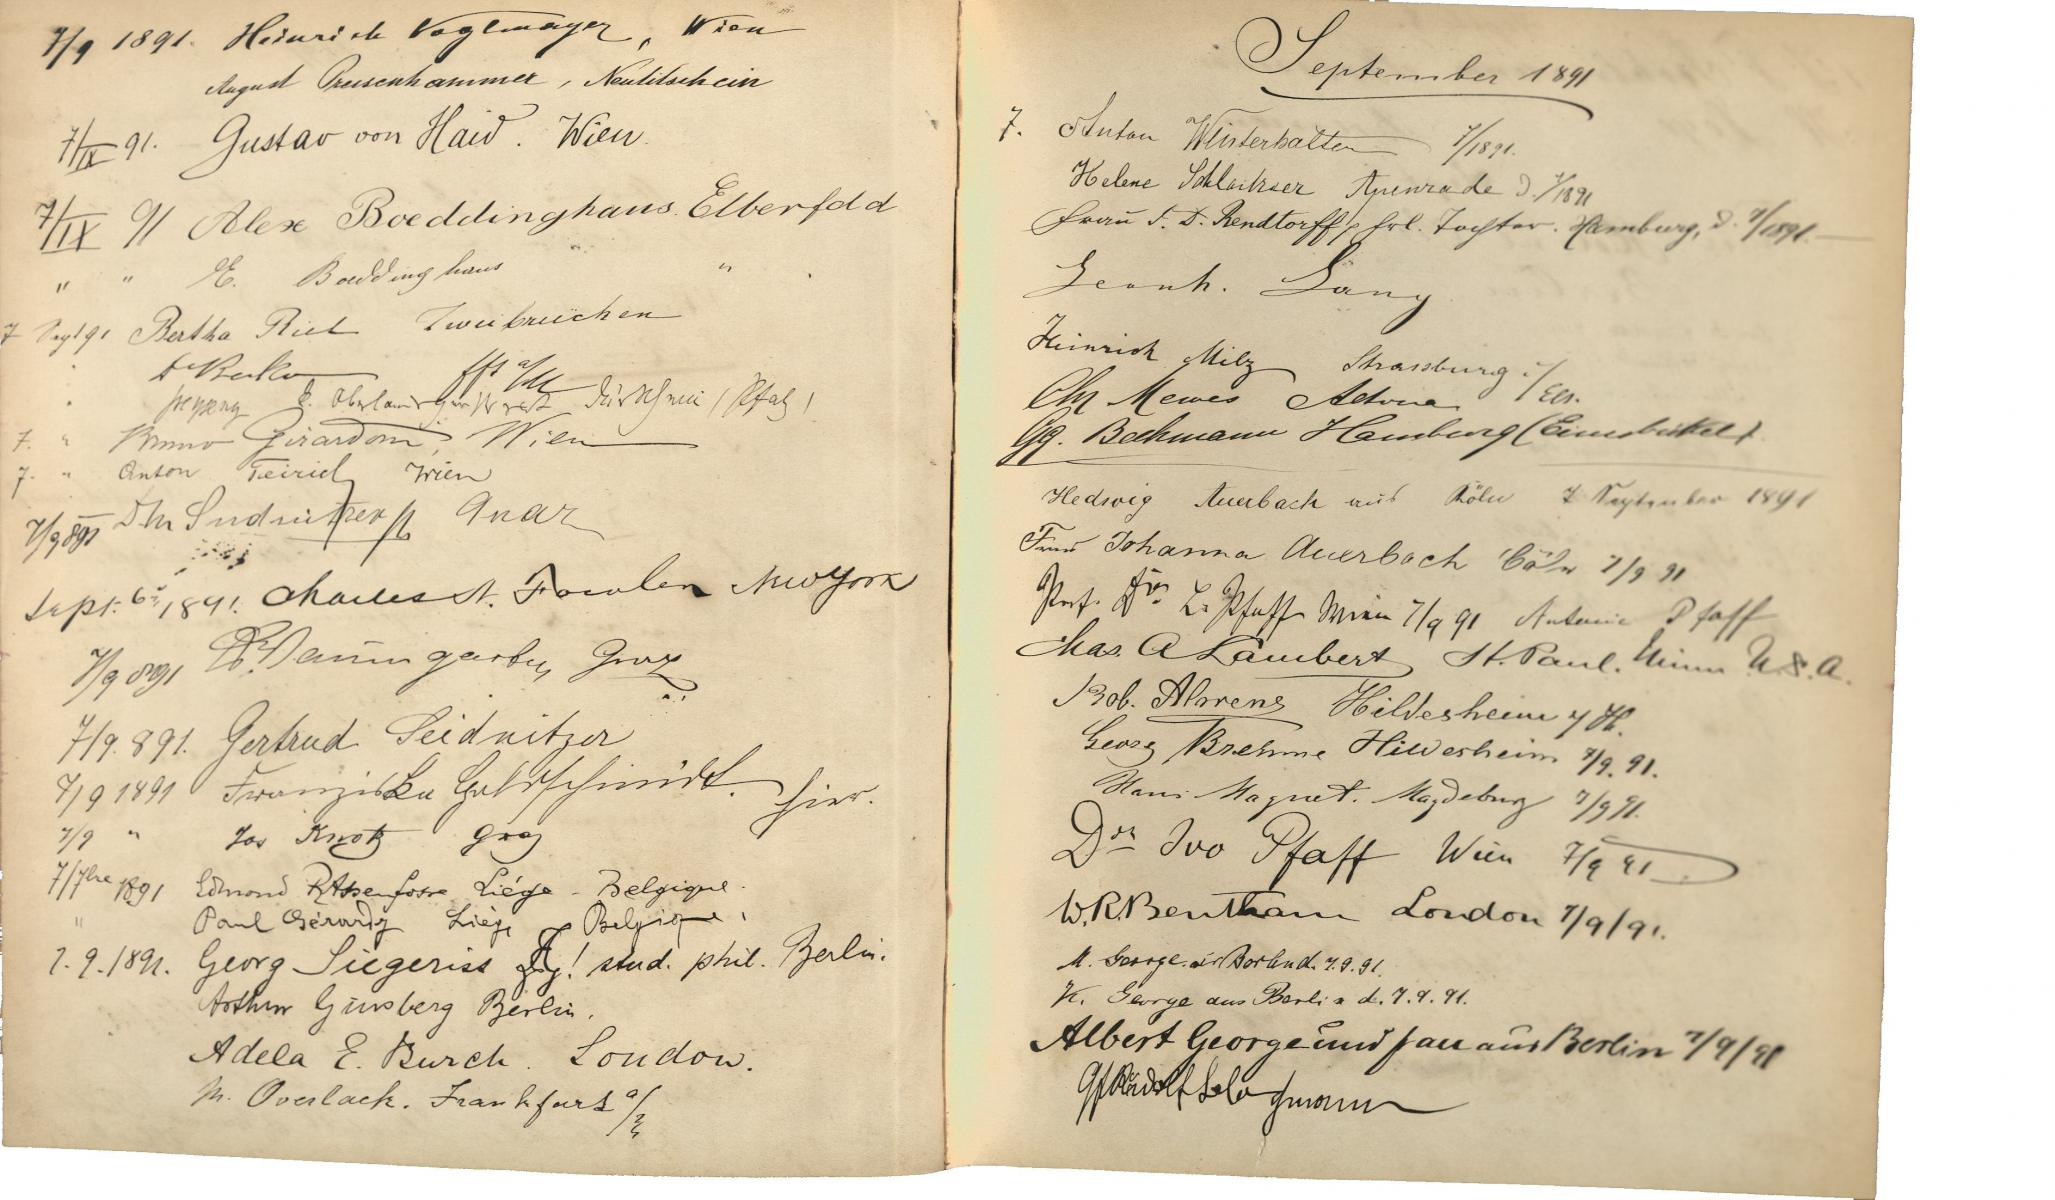 7/9 1891. Heinrich Voglmayer, Wien
August Preisenhammer, Neutitschein
7/IX 91. Gustav von Haid. Wien.
7/IX 91 Alex Boeddinghaus. Elberfeld
" " E. Boeddinghaus "
7 Sept 91 Bertha Zweibrücken
(Pfalz)
7. " Bruno Girardoni, Wien
7. " Anton Wien
7/9 891
Sept. 6 1891. Charles New York
7/9 891 Baumgartner, Graz
7/9. 891. Gertrud Seidnitzer
7/9 1891 Franziska Goldschmidt. hier.
7/9 " Jos Knotz Graz
7/7bre 1891 Edmond Rassenfosse Liége - Belgique.
" Paul Gérardy Liége Belgique.
7.9.1891. Georg Siegerist stud. phil. Berlin.
Arthur Ginsberg Berlin.
Adela E. Burch. London.
M. Overlack. Frankfurt a/M
September 1891
7. Anton Winterhalter 7/1891.
Helene Apenrade d. 7/1891
Frau Rendorff Tochter. Hamburg, d. 7/1891.
Lang
Heinrich Milz Strassburg i/Els.
Chr Mewes Altona
Gg. Beckmann Hamburg (Eimsbüttel)
Hedwig Auerbach aus Köln 7 September 1891
Frau Johanna Auerbach Cöln 7/9 91
Prof. Dr. L. Pfaff Wien 7/9 91 Antonie Pfaff
Chas. A Lambert St. Paul. Minn U.S.A.
Rob. Ahrens Hildesheim
Georg Brehme Hildesheim 7/9.91.
Hans Magnet. Magdeburg 7/9 91.
Dr Ivo Pfaff Wien 7/9 91
W.R. Bentham London 7/9/91.
M. George. aus Berlin d. 7.9.91.
K. George aus Berlin d. 7.9.91.
Albert George und Frau aus Berlin 7/9/91
Rudolf